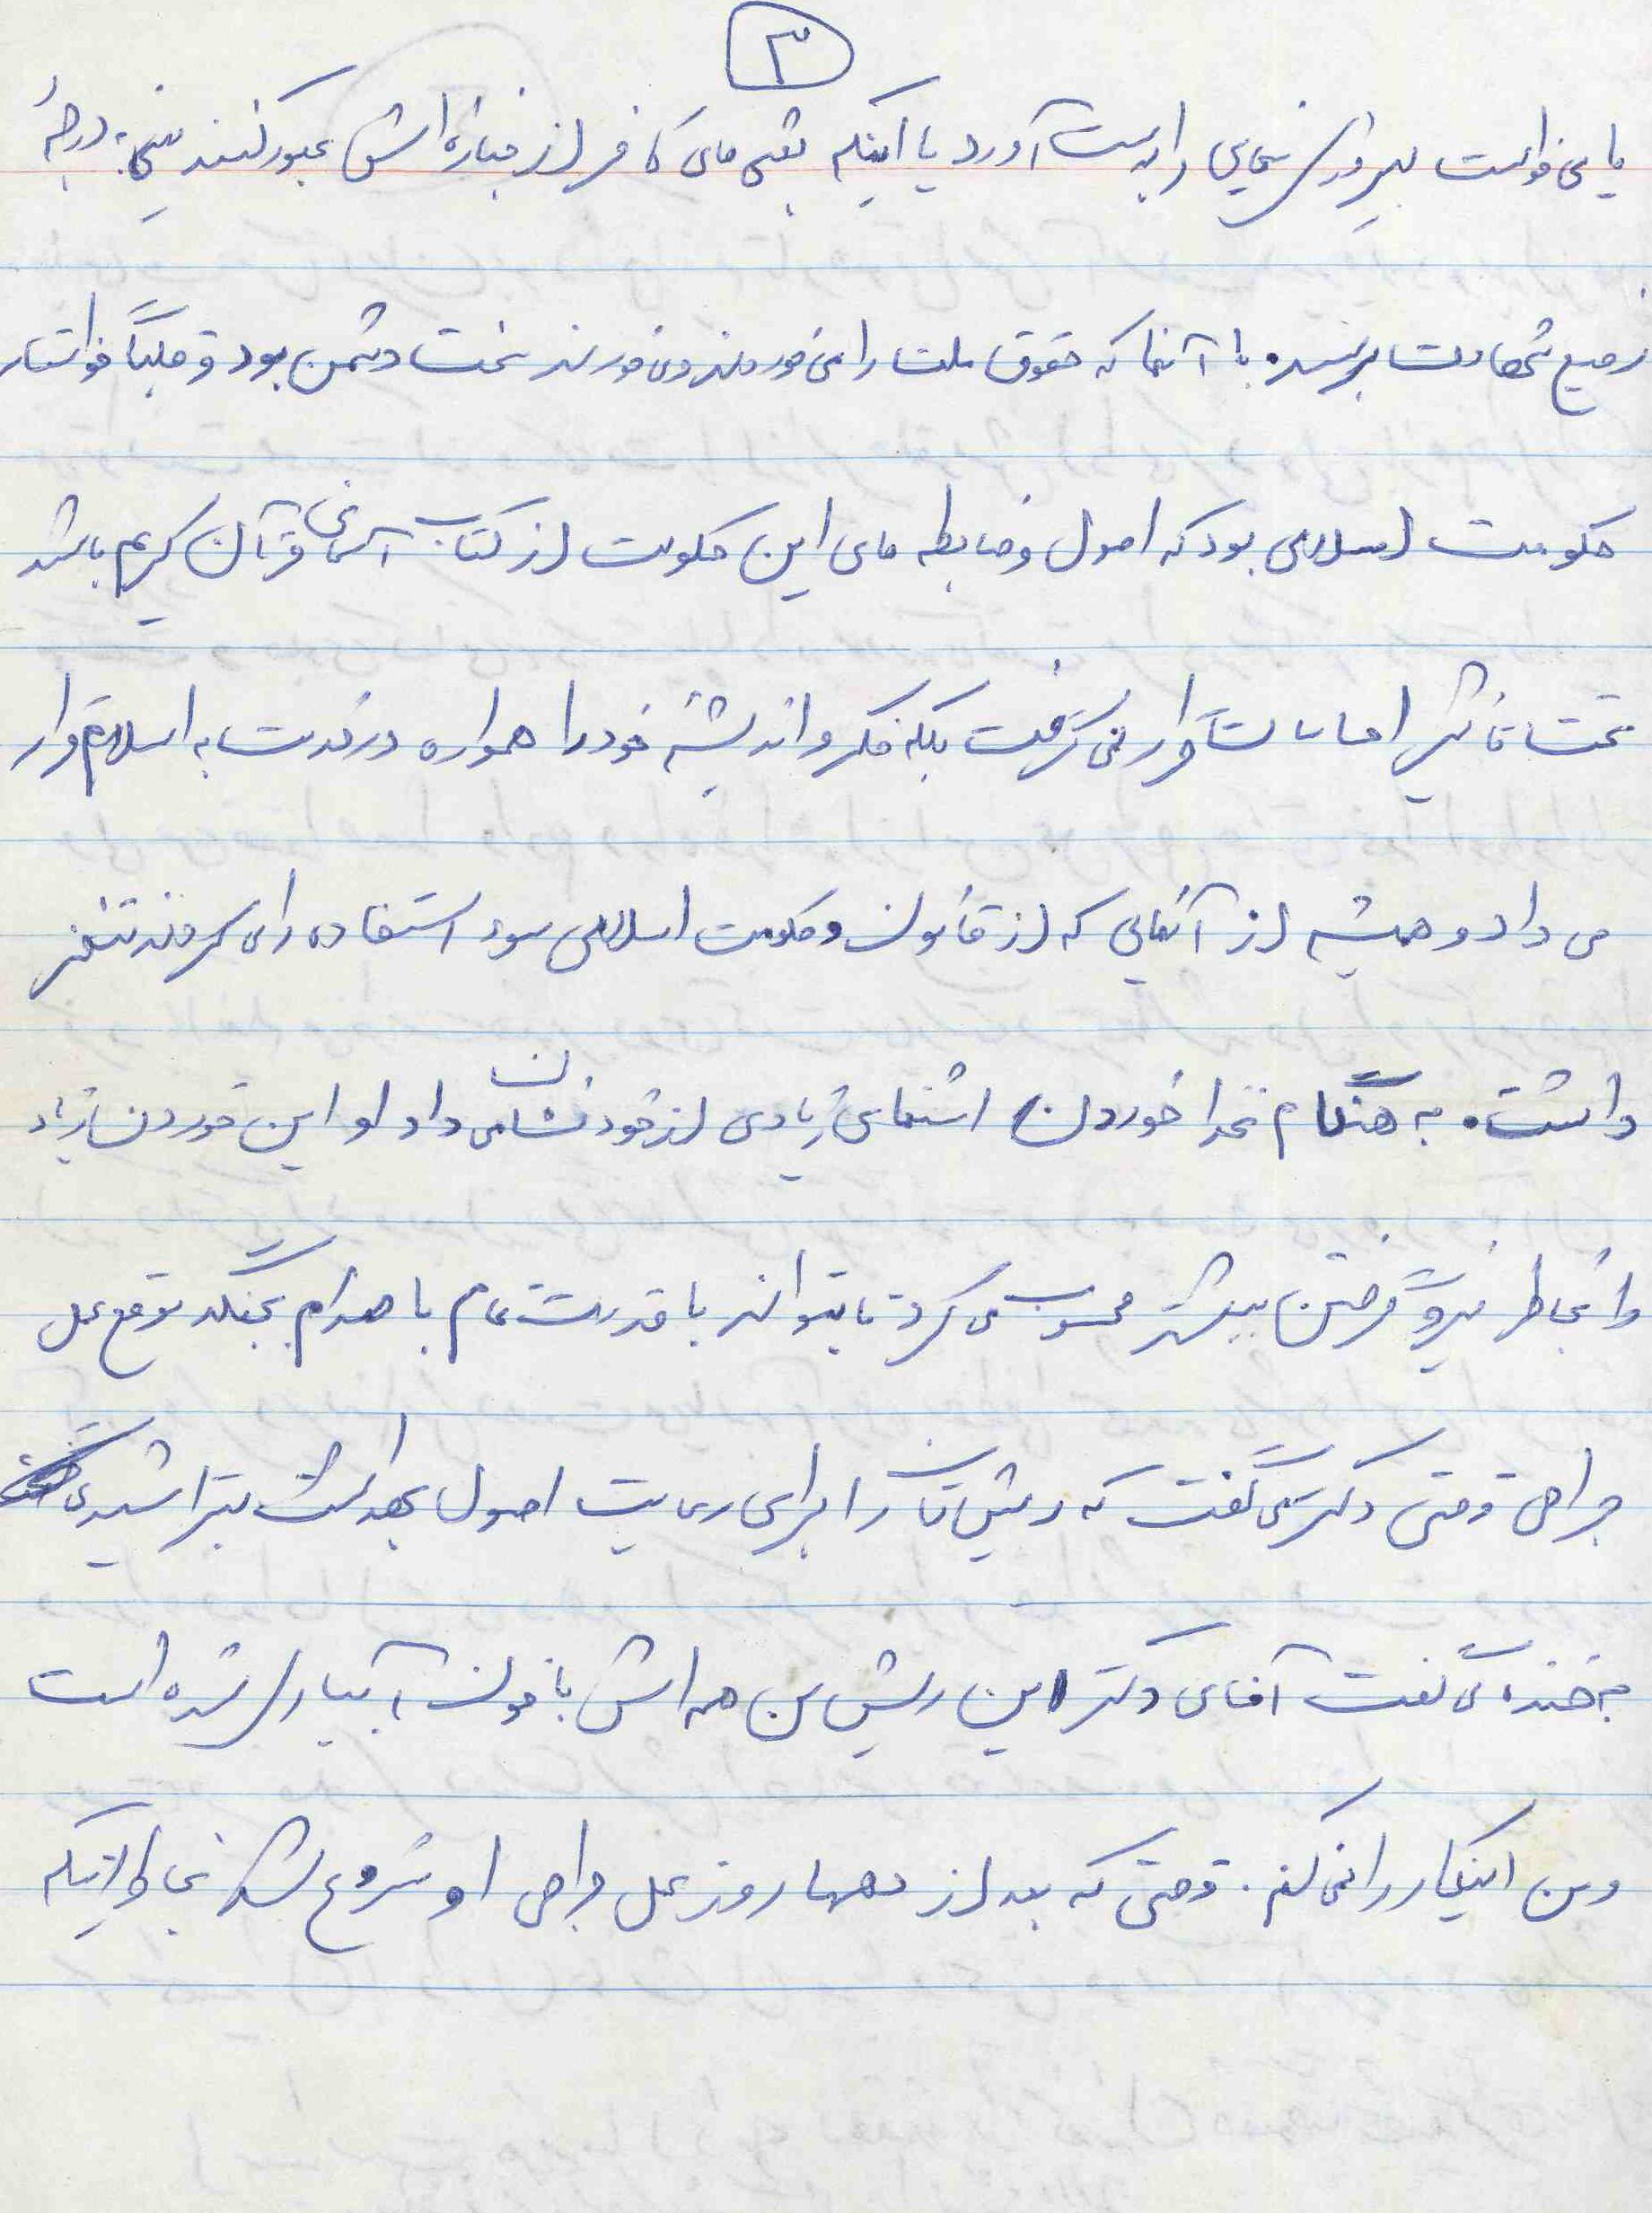 ۳
یا می خواست پیروزی نهایی را بدست آورد یا اینکه بعثی های کافر از جنازه اش عبور کنند یعنی به درجهٔ
رفیع شهادت برسد. با آنها که حقوق ملت را می خوردند و می خورند سخت دشمن بود و قلباً خواستار
حکومت اسلامی بود که اصول و ضابطه های این حکومت از کتاب آسمانی قرآن کریم باشد
تحت تاثیر احساسات قرار نمی گرفت بلکه فکر و اندیشه خود را همواره در خدمت به اسلام قرار
می داد و همیشه از آنهایی که از قانون و حکومت اسلامی سوء استفاده می کردند تنفر
داشت. به هنگام غذا خوردن اشتهای زیادی از خود نشان می داد او این خوردن زیاد
را بخاطر نیرو گرفتن بیشتر محسوب می کرد تا بتواند با قدرت تمام با صدام بجنگد موقع عمل
جراحی وقتی دکتر می گفت که ریش تان را برای رعایت اصول بهداشت بتراشید
به خنده می گفت آقای دکتر این ریش من همه اش با خون آبیاری شده است
و من اینکار را نمی کنم. وقتی که بعد از دهها روز عمل جراحی او شروع شد بخاطر اینکه